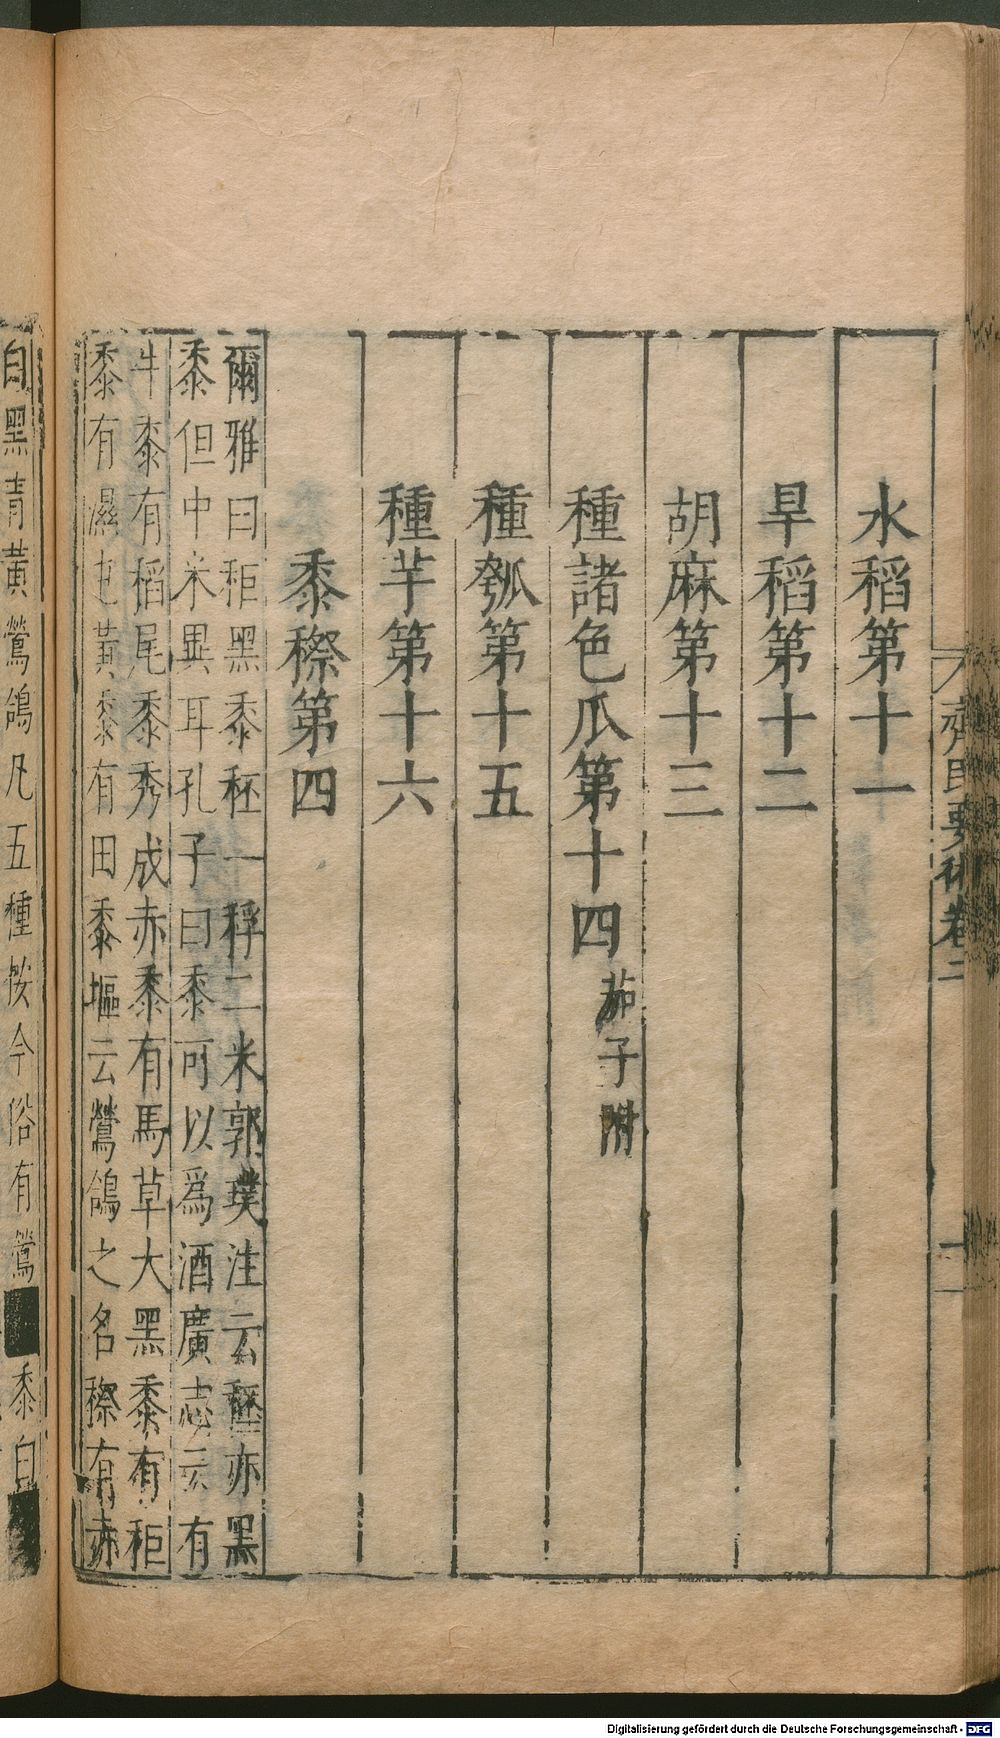 齊民要術卷二
一
水稻第十一
旱稻第十二
胡麻第十三
種諸色瓜第十四 茄子附
種瓠第十五
種芋第十六
黍穄第四
爾雅曰秬黑黍秠一稃二米郭璞注云秠亦黑
黍但中米異耳孔子曰黍可以為酒廣志云有
牛黍有稻尾黍秀成赤黍有馬草大黑黍有秬
黍有濕屯黃黍有田黍塸云鶯鴿之名穄有赤
白黑青黃鶯鴿凡五種按今俗有鶯黍白
Digitalisierung gefördert durch die Deutsche Forschungsgemeinschaft - DFG